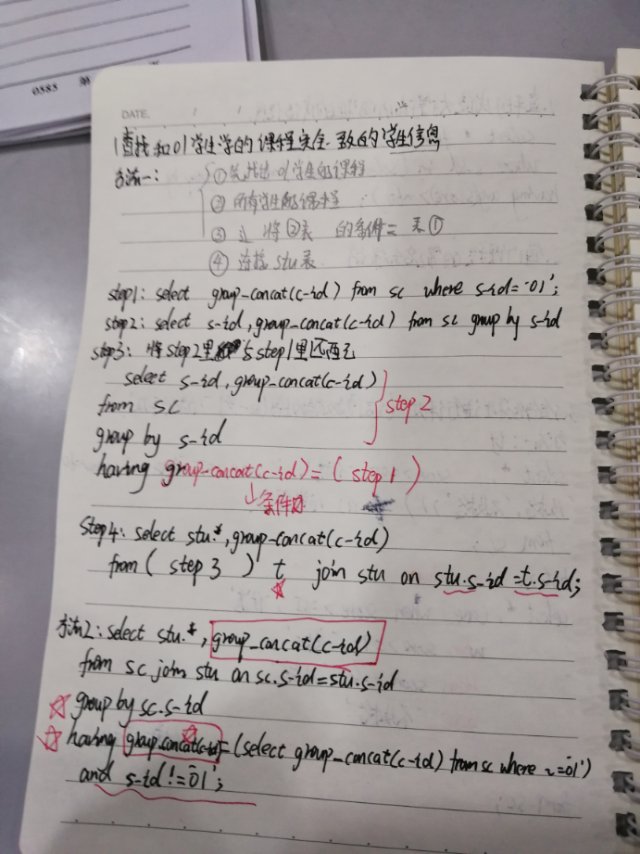 0585 第
DATE.
1查找和01学生学的课程完全一致的学生信息
方法一: ①先找出01学生的课程
②所有学生的课程
③ 将②表 的条件= 表①
④ 连接stu表
step1: select group_concat(c-id) from sc where s-id='01';
step2: select s-id,group_concat(c-id) from sc group by s-id
step3: 将step2里 与step1里匹配
select s-id,group_concat(c-id)
from sc
step2
group by s-id
having group-concat(c-id)=(step1)
↓条件
Step4: select stu.*,group-concat(c-id)
from( step3 ) t join stu on stu.s-id=t.s-id;
方法2: select stu.*, group_concat(c-id)
from sc join stu on sc.s-id=stu.s-id
group by sc.s-id
having group_concat(c-id)=(select group_concat(c-id) from sc where =01')
and s-id!='01';